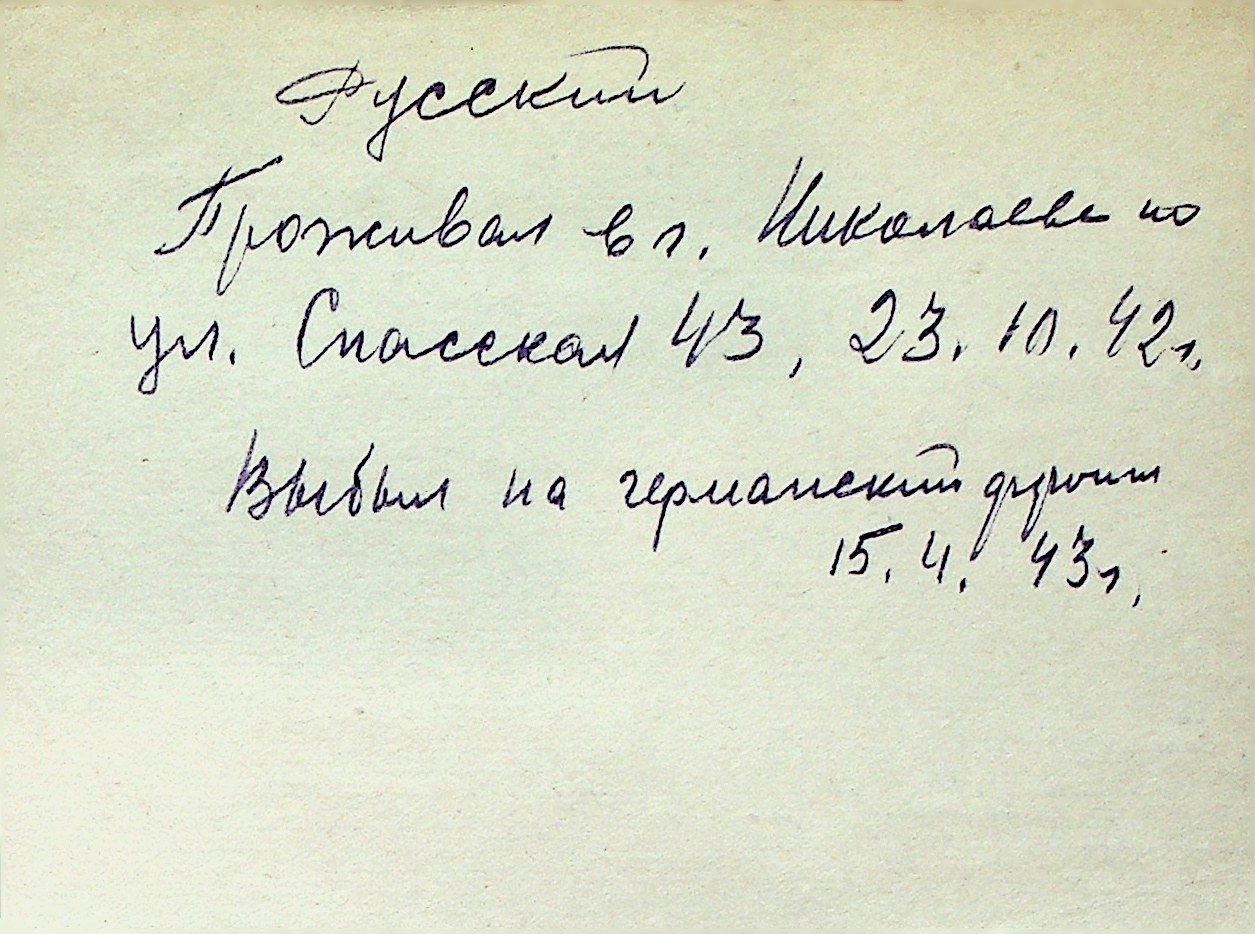 Русский
Проживал в г. Николаеве по
ул. Спасская 43, 23.10.42г.
Выбыл на германский фронт
15.4. 43г.